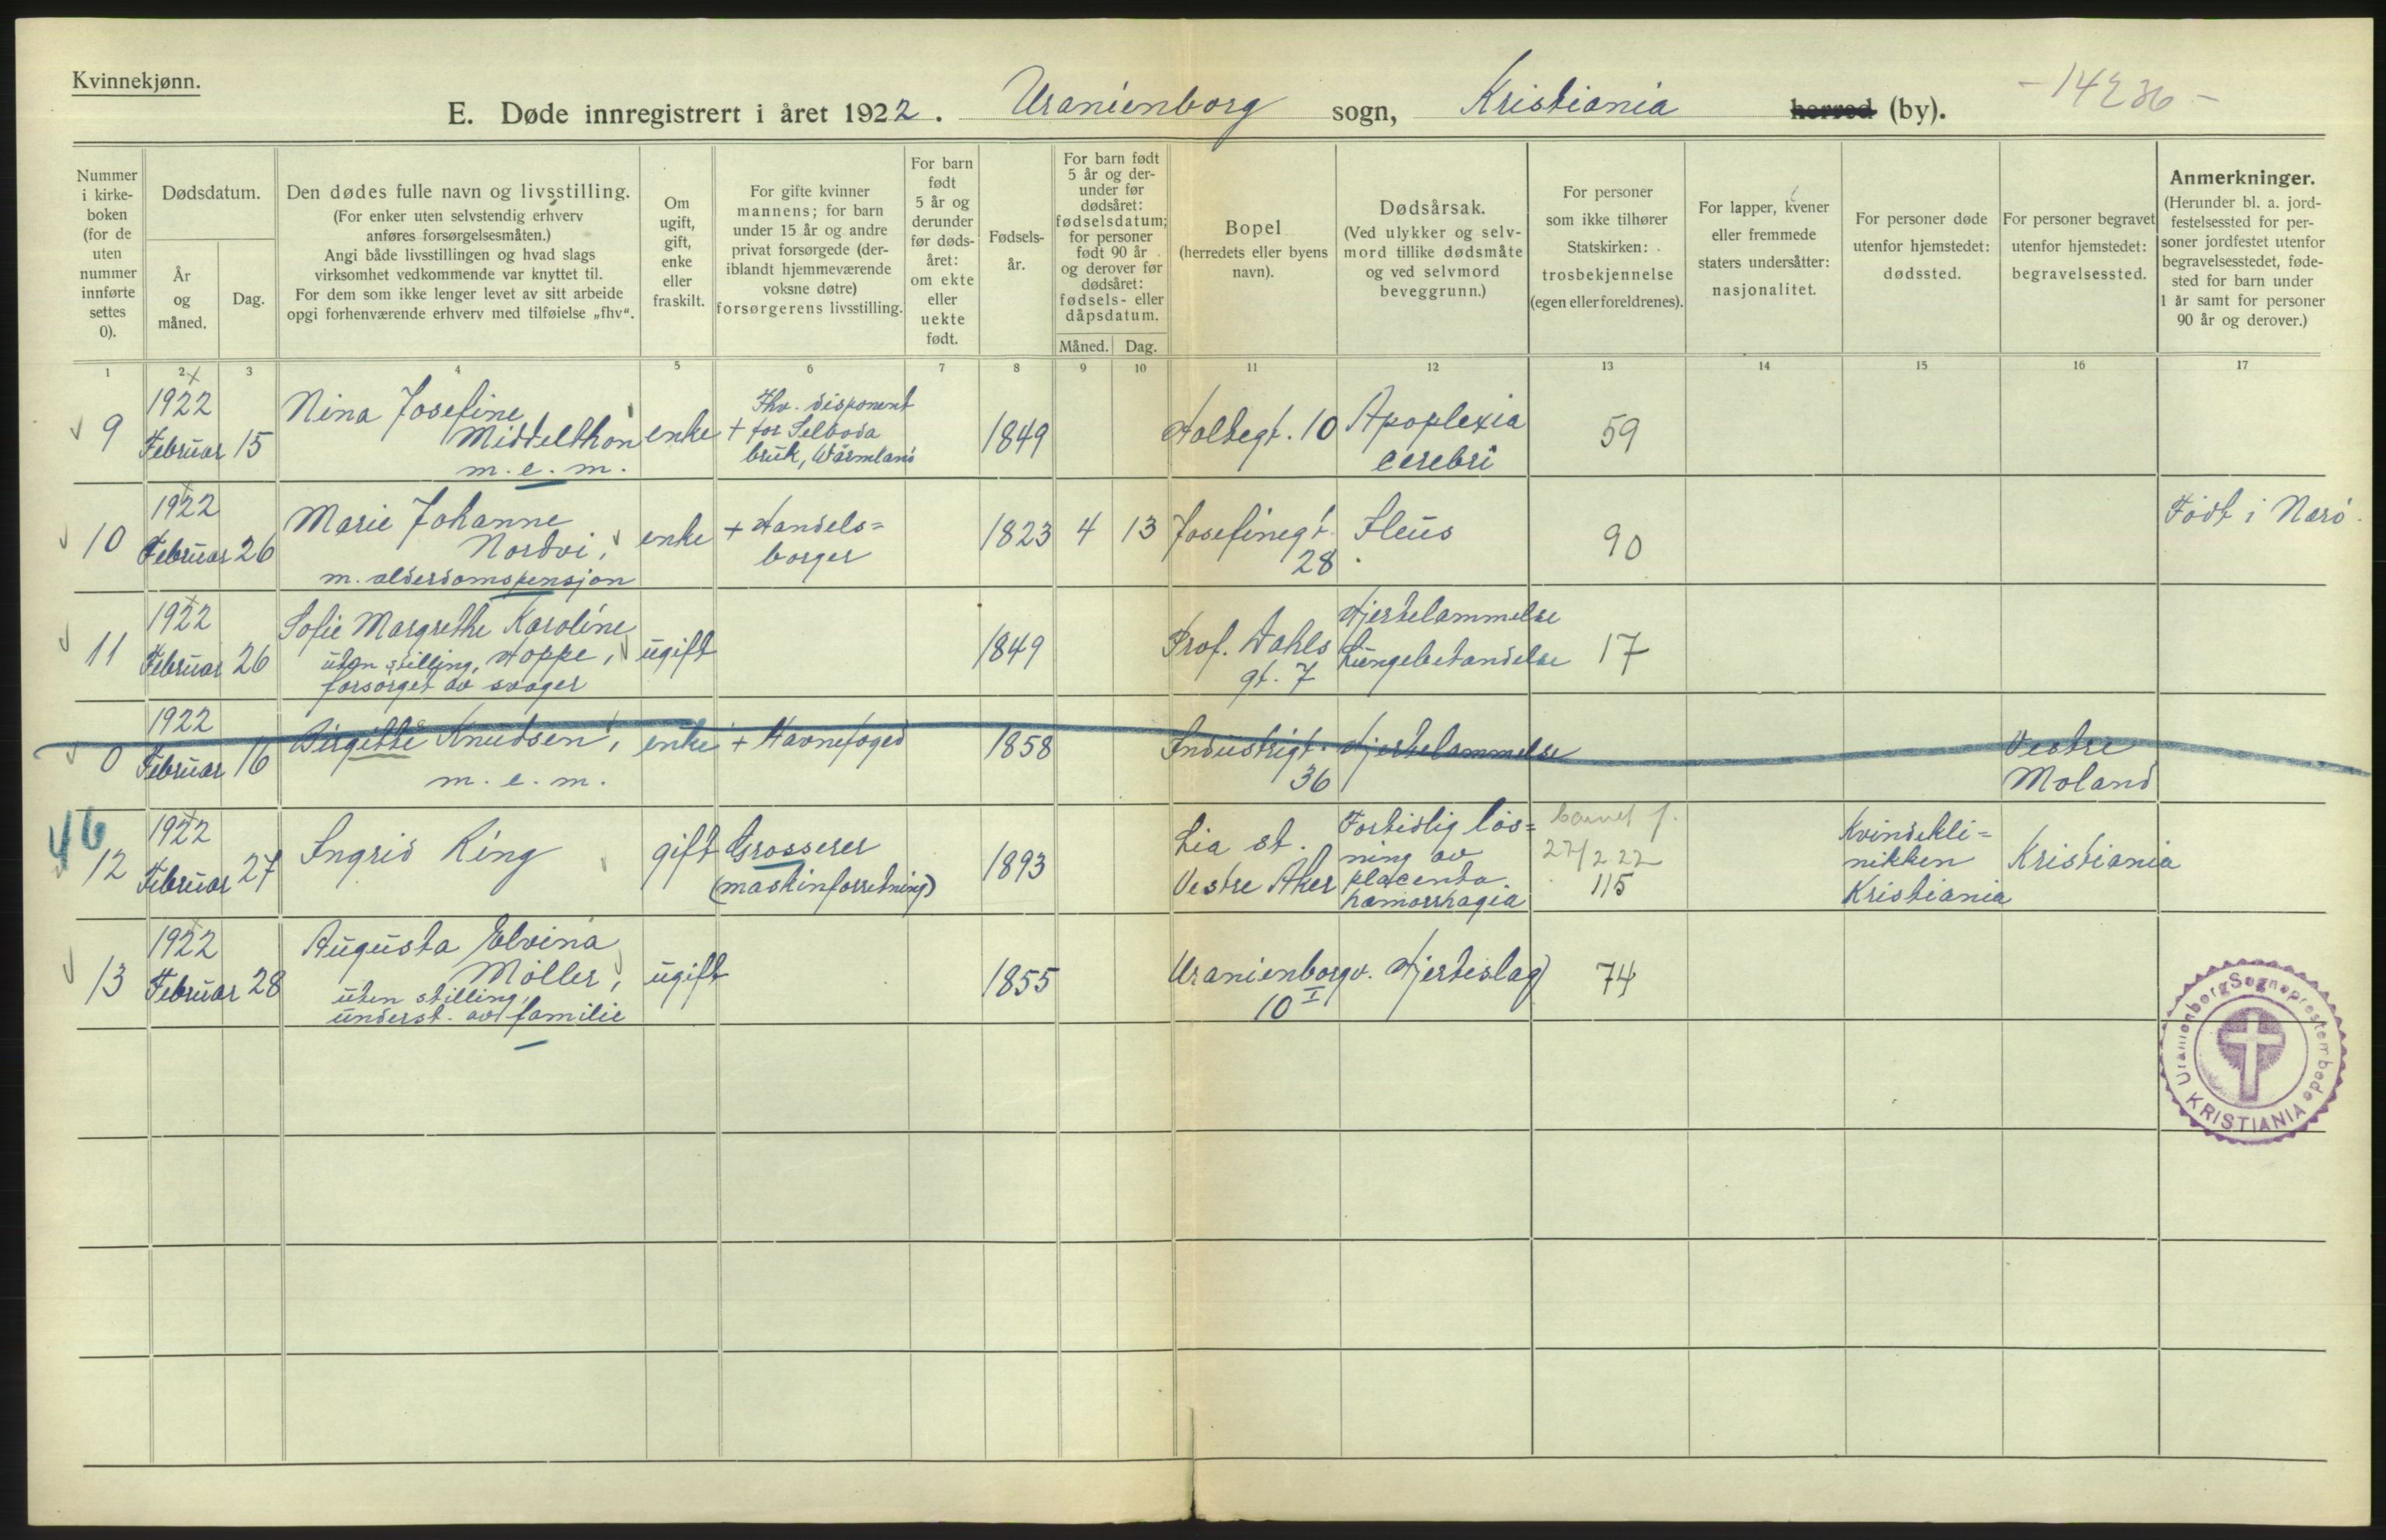 Kvinnekjønn.
E. Døde innregistrert i året 1922. Uranienborg sogn, Kristiania herred (by).
Nummer i kirke-boken (for de uten nummer innførte settes 0).
Dødsdatum.
År og måned.
Dag.
Den dødes fulle navn og livsstilling.
(For enker uten selvstendig erhverv
anføres forsørgelsesmåten.)
Angi både livsstillingen og hvad slags
virksomhet vedkommende var knyttet til.
For dem som ikke lenger levet av sitt arbeide
opgi forhenværende erhverv med tilføielse „fhv“.
Om
ugift,
gift,
enke
eller
fraskilt.
For gifte kvinner
mannens; for barn
under 15 år og andre
privat forsørgede (der-
iblandt hjemmeværende
voksne døtre)
forsørgerens livsstilling.
For barn
født
5 år og
derunder
før døds-
året:
om ekte
eller
uekte
født.
Fødsels-
år.
For barn født
5 år og der-
under før
dødsåret:
fødselsdatum;
for personer
født 90 år
og derover før
dødsåret:
fødsels- eller
dåpsdatum.
Måned. Dag.
Bopel
(herredets eller byens
navn).
Dødsårsak.
(Ved ulykker og selv-
mord tillike dødsmåte
og ved selvmord
beveggrunn.)
For personer
som ikke tilhører
Statskirken:
trosbekjennelse
(egen eller foreldrenes).
For lapper, kvener
eller fremmede
staters undersåtter:
nasjonalitet.
For personer døde
utenfor hjemstedet:
dødssted.
For personer begravet
utenfor hjemstedet:
begravelsessted.
Anmerkninger.
(Herunder bl. a. jord-
festelsessted for per-
soner jordfestet utenfor
begravelsesstedet, føde-
sted for barn under
1 år samt for personer
90 år og derover.)
1 2 3 4 5 6 7 8 9 10 11 12 13 14 15 16 17
9
1922
Februar 15
Nina Josefine
Middelthon
m.e.m.
enke
+ Fhv. disponent
for Selboda
bruk, Wärmland
1849
Holtegt. 10
Apoplexia
cerebri
59
10
1922
Februar 26
Marie Johanne
Nordvi,
m. alderdomspensjon
enke
+ Handels=
borger
1823 4 13
Josefinegt.
28
Ileus
90
Født i Nærö.
11
1922
Februar 26
Sofie Margrethe Karoline
uten stilling, Hoppe,
forsörget av svoger
ugift
1849
Prof. Dahls
gt. 7
Hjertelammelse
Lungebetændelse
17
0
1922
Februar 16
Birgitte Knudsen,
m.e.m.
enke
+ Havnefoged
1858
Industrigt.
36
Hjertelammelse
Vestre
Moland
46
12
1922
Februar 27
Ingrid Ring
gift
Grosserer
(maskinforretning)
1893
Lia st.
Vestre Aker
Fortidlig lös=
ning av
placenta
hæmorrhagia
barnet f.
27/2 22
115
Kvindekli=
nikken
Kristiania
Kristiania
13
1922
Februar 28
Augusta Elvina
Möller,
uten stilling,
underst. av familie
ugift
1855
Uranienborgv.
10 I
Hjerteslag
74
Uranienborg Sogneprestembede
KRISTIANIA